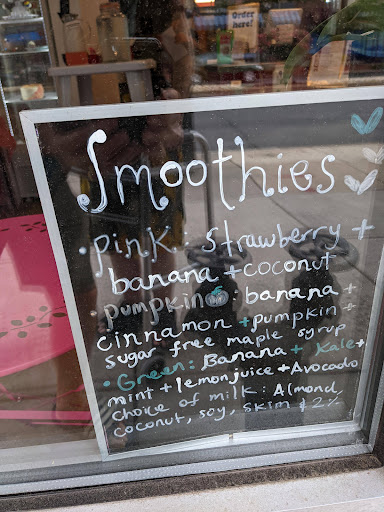 Order
here!
Smoothies
• Pink: Strawberry +
banana + coconut
• pumpkin: banana +
cinnamon + pumpkin +
sugar free maple syrup
• Green: Banana + Kale +
mint + lemon juice + Avocado
choice of milk: Almond,
coconut, soy, skim & 2%